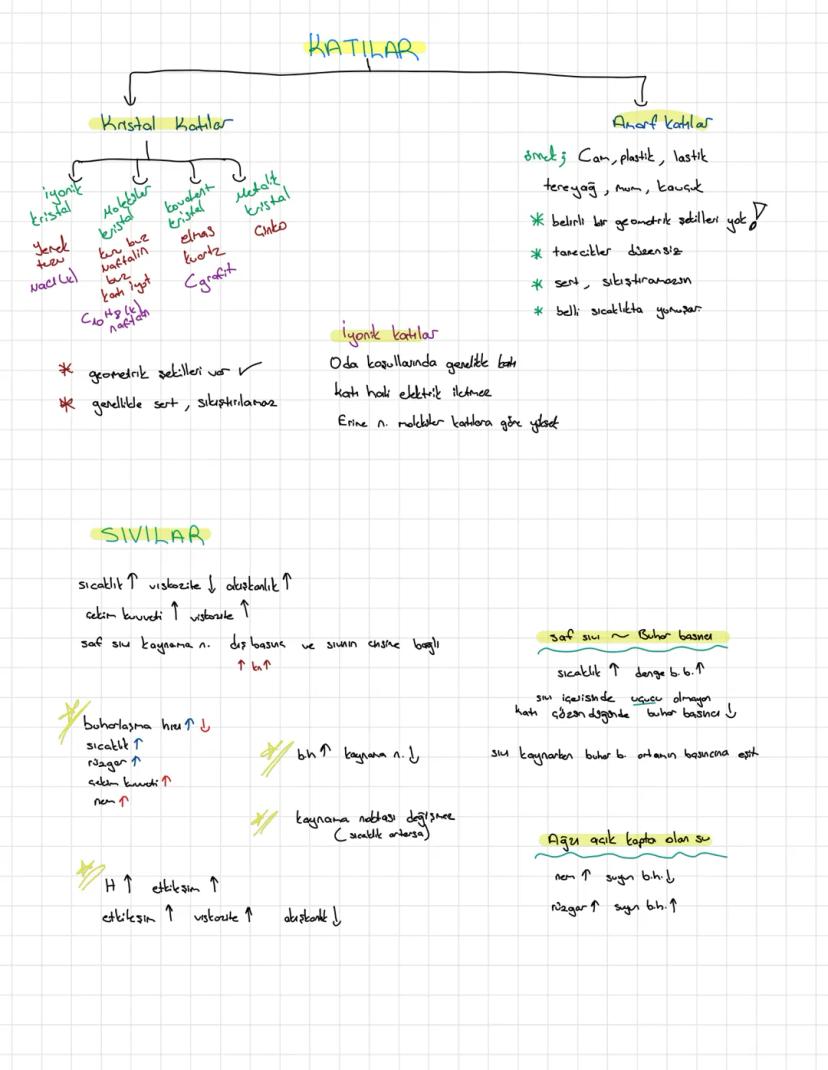 KATILAR
Kristal Katılar
iyonik
kristal
Yemek
tuzu
NaCl(k)
Moleküler
kristal
kuru buz
Naftalin
buz
katı iyot
C10H8(k)
naftalin
kovalent
kristal
elmas
kuartz
Cgrafit
Metalik
kristal
Çinko
* geometrik şekilleri var ✓
* genellikle sert, sıkıştırılamaz
Amorf katılar
örnek; Cam, plastik, lastik
tereyağ, mum, kauçuk
* belirli bir geometrik şekilleri yok!
* tanecikler düzensiz
* sert, sıkıştırılamazın
* belli sıcaklıkta yumuşar
İyonik katılar
Oda koşullarında genellikle katı
katı hali elektrik iletmez
Erime n. moleküler katılara göre yüksek
SIVILAR
sıcaklık ↑ viskozite ↓ akışkanlık ↑
çekim kuvveti ↑ viskozite ↑
saf sıvı kaynama n. dış basınç ve sıvının cinsine bağlı
↑ kn ↑
buharlaşma hızı ↑ ↓
sıcaklık ↑
rüzgar ↑
çekim kuvveti ↑
nem ↑
b.h ↑ kaynama n. ↓
kaynama noktası değişmez
(sıcaklık artarsa)
H ↑ etkileşim ↑
etkileşim ↑ viskozite ↑ akışkanlık ↓
saf sıvı ~ Buhar basıncı
sıcaklık ↑ denge b.b. ↑
sıvı içerisinde uçucu olmayan
katı çözündüğünde buhar basıncı ↓
sıvı kaynarken buhar b. ortamın basıncına eşit
Ağzı açık kapta olan su
nem ↑ suyun b.h. ↓
rüzgar ↑ suyun b.h. ↑